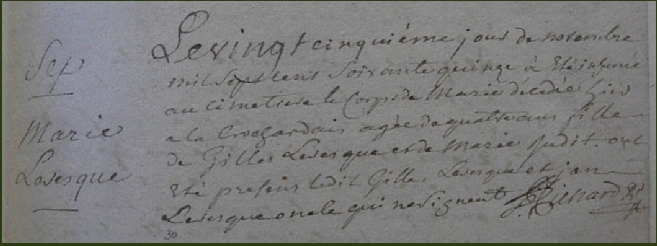 Sep
Marie
Levesque
Le vingt cinquiéme jour de novembre
mil Sept cent Soixante quinze à Eté inhumé
au cimetiere le Corps de Marie decédée hier
a la Crogardais agée de quatre ans fille
de Gilles Levesque et de Marie Judit. ont
Eté presens ledit Gilles Levesque et jan
Levesque oncle qui ne signent Richard
30